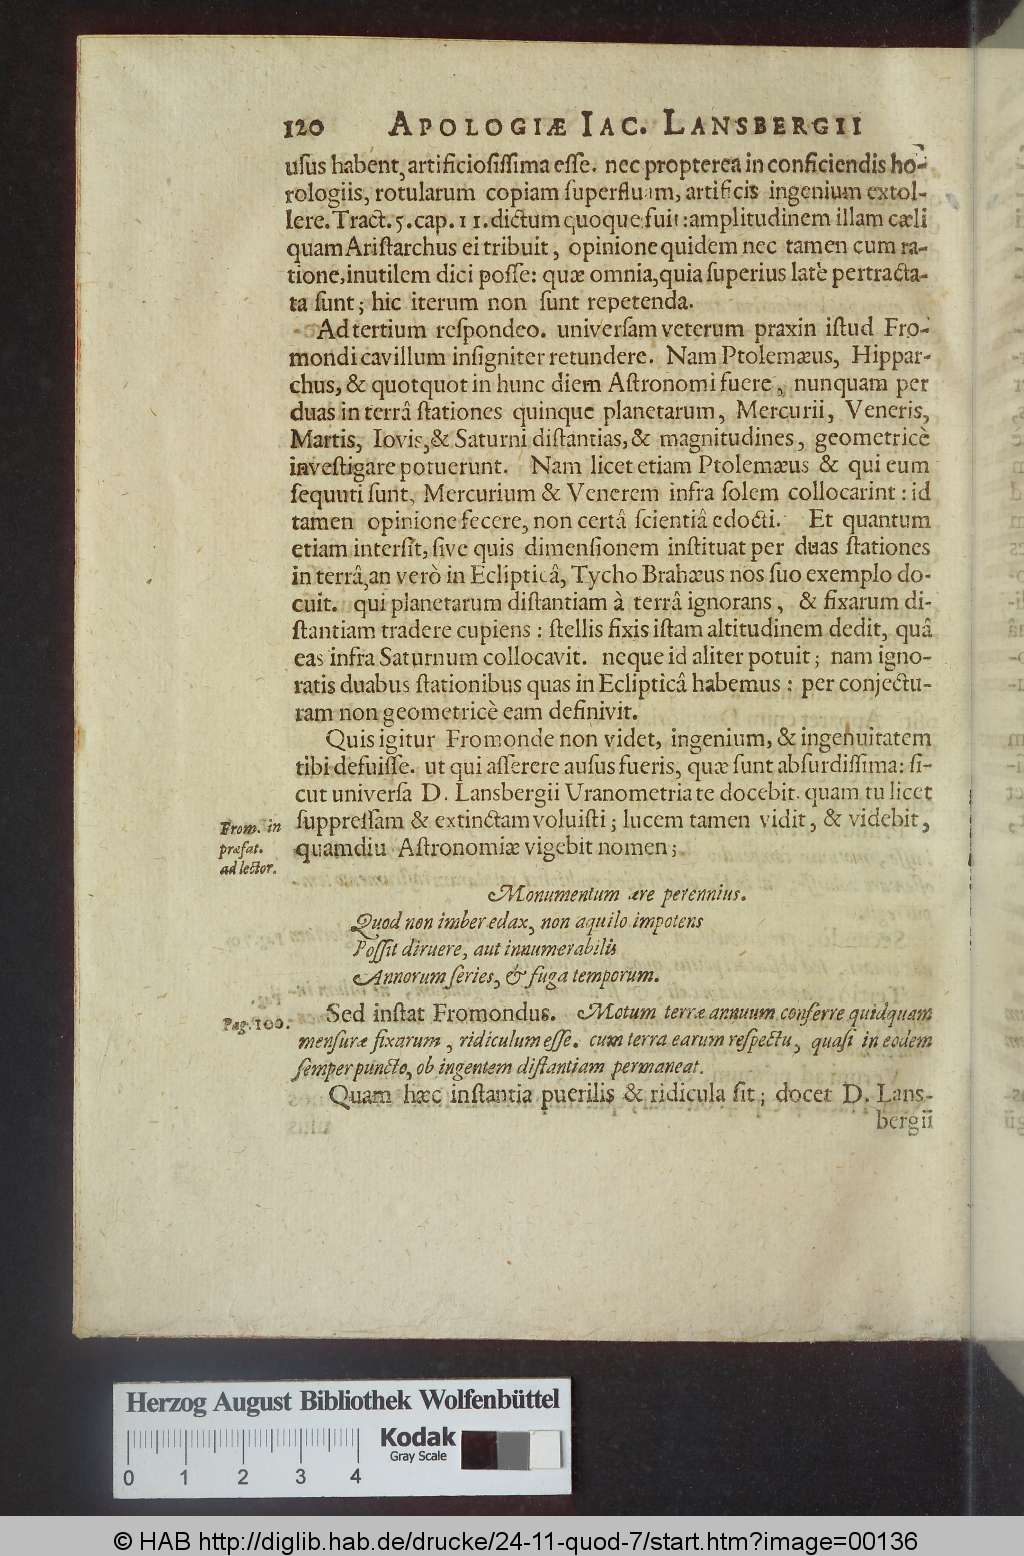 120 APOLOGIÆ IAC. LANSBERGII
uſus habent, artificioſiſſima eſſe. nec propterea in conficiendis ho-
rologiis, rotularum copiam ſuperfluam, artificis ingenium extol-
lere. Tract. 5. cap. 11. dictum quoque fuit: amplitudinem illam cæli
quam Ariſtarchus ei tribuit, opinione quidem nec tamen cum ra-
tione, inutilem dici poſſe: quæ omnia, quia ſuperius latè pertracta-
ta ſunt; hic iterum non ſunt repetenda.
Ad tertium reſpondeo. univerſam veterum praxin iſtud Fro-
mondi cavillum inſigniter retundere. Nam Ptolemæus, Hippar-
chus, & quotquot in hunc diem Aſtronomi fuere, nunquam per
duas in terrâ ſtationes quinque planetarum, Mercurii, Veneris,
Martis, Iovis, & Saturni diſtantias, & magnitudines, geometricè
inveſtigare potuerunt. Nam licet etiam Ptolemæus & qui eum
ſequuti ſunt, Mercurium & Venerem infra ſolem collocarint: id
tamen opinione fecere, non certâ ſcientiâ edocti. Et quantum
etiam interſit, ſive quis dimenſionem inſtituat per duas ſtationes
in terrâ, an verò in Eclipticâ, Tycho Brahæus nos ſuo exemplo do-
cuit. qui planetarum diſtantiam à terrâ ignorans, & fixarum di-
ſtantiam tradere cupiens: ſtellis fixis iſtam altitudinem dedit, quâ
eas infra Saturnum collocavit. neque id aliter potuit; nam igno-
ratis duabus ſtationibus quas in Eclipticâ habemus: per conjectu-
ram non geometricè eam definivit.
Quis igitur Fromonde non videt, ingenium, & ingenuitatem
tibi defuiſſe. ut qui aſſerere auſus fueris, quæ ſunt abſurdiſſima: ſi-
cut univerſa D. Lansbergii Uranometria te docebit. quam tu licet
From. in
præfat.
ad lector.
ſuppreſſam & extinctam voluiſti; lucem tamen vidit, & videbit,
quamdiu Aſtronomiæ vigebit nomen;
Monumentum ære perennius.
Quod non imber edax, non aquilo impotens
Poſſit diruere, aut innumerabilis
Annorum ſeries, & fuga temporum.
Pag. 100.
Sed inſtat Fromondus. Motum terræ annuum conferre quidquam
menſuræ fixarum, ridiculum eſſe. cum terra earum reſpectu, quaſi in eodem
ſemper puncto, ob ingentem diſtantiam permaneat.
Quam hæc inſtantia puerilis & ridicula ſit; docet D. Lans-
bergii
Herzog August Bibliothek Wolfenbüttel
Kodak
Gray Scale
0 1 2 3 4
© HAB http://diglib.hab.de/drucke/24-11-quod-7/start.htm?image=00136